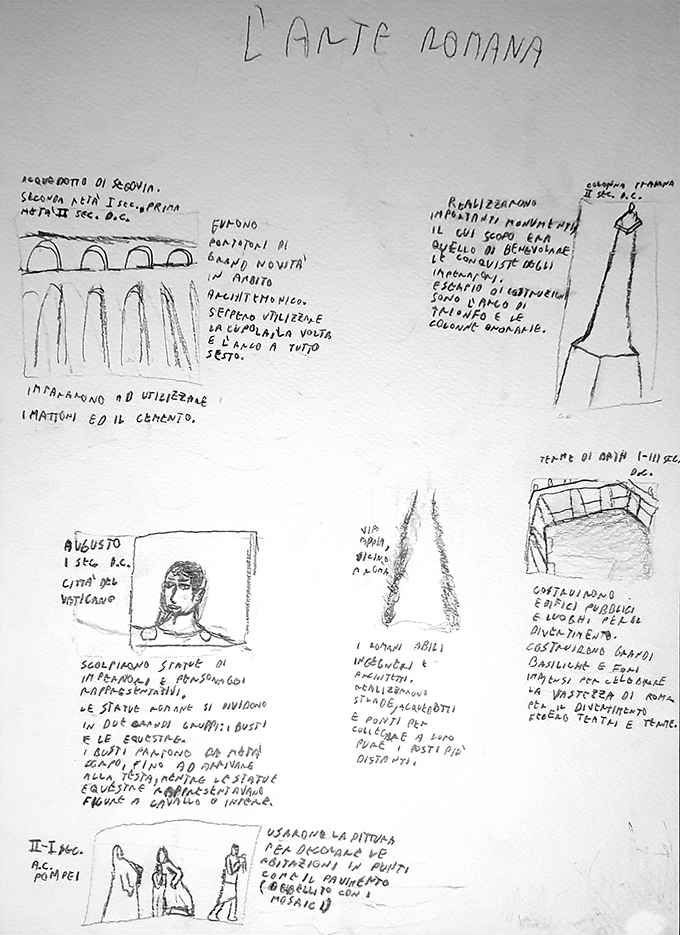 L'ARTE ROMANA
ACQUEDOTTO DI SEGOVIA.
SECONDA METÀ I SEC., PRIMA
METÀ II SEC. D.C.
FURONO
PORTATORI DI
GRAND NOVITA'
IN AMBITO
ARCHITEMONICO.
SEPPERO UTILIZZARE
LA CUPOLA, LA VOLTA
E L'ARCO A TUTTO
SESTO.
IMPARARONO AD UTILIZZARE
I MATTONI ED IL CEMENTO.
COLONNA TRAIANA
II SEC. D.C.
REALIZZARONO
IMPORTANTI MONUMENTI,
IL CUI SCOPO ERA
QUELLO DI BENEVOLARE
LE CONQUISTE DEGLI
IMPERATORI.
ESEMPIO DI COSTRUZIONI
SONO L'ARCO DI
TRIONFO E LE
COLONNE ONORARIE.
AUGUSTO
I SEC D.C.
CITTÀ DEL
VATICANO
SCOLPIRONO STATUE DI
IMPERATORI E PERSONAGGI
RAPPRESENTATIVI.
LE STATUE ROMANE SI DIVIDONO
IN DUE GRANDI GRUPPI: I BUSTI
E LE EQUESTRE.
I BUSTI PARTONO DA METÀ
CORPO, FINO AD ARRIVARE
ALLA TESTA, MENTRE LE STATUE
EQUESTRE RAPPRESENTAVANO
FIGURE A CAVALLO O INTERE.
VIA
APPIA,
VICINO
A ROMA
I ROMANI ABILI
INGEGNERI E
ARCHITETTI.
REALIZZARONO
STRADE, ACQUEDOTTI
E PONTI PER
COLLEGARE A LORO
PURE I POSTI PIÙ
DISTANTI.
TERME DI BATH I-III SEC.
D.C.
COSTRUIRONO
EDIFICI PUBBLICI
E LUOGHI PER IL
DIVERTIMENTO.
COSTRUIRONO GRANDI
BASILICHE E FORI
IMMENSI PER CELEBRARE
LA VASTEZZA DI ROMA
PER IL DIVERTIMENTO
FECERO TEATRI E TERME.
II-I SEC.
A.C.
POMPEI
USARONO LA PITTURA
PER DECORARE LE
ABITAZIONI IN PUNTI
COME IL PAVIMENTO
(ABBELLITO CON I
MOSAICI)